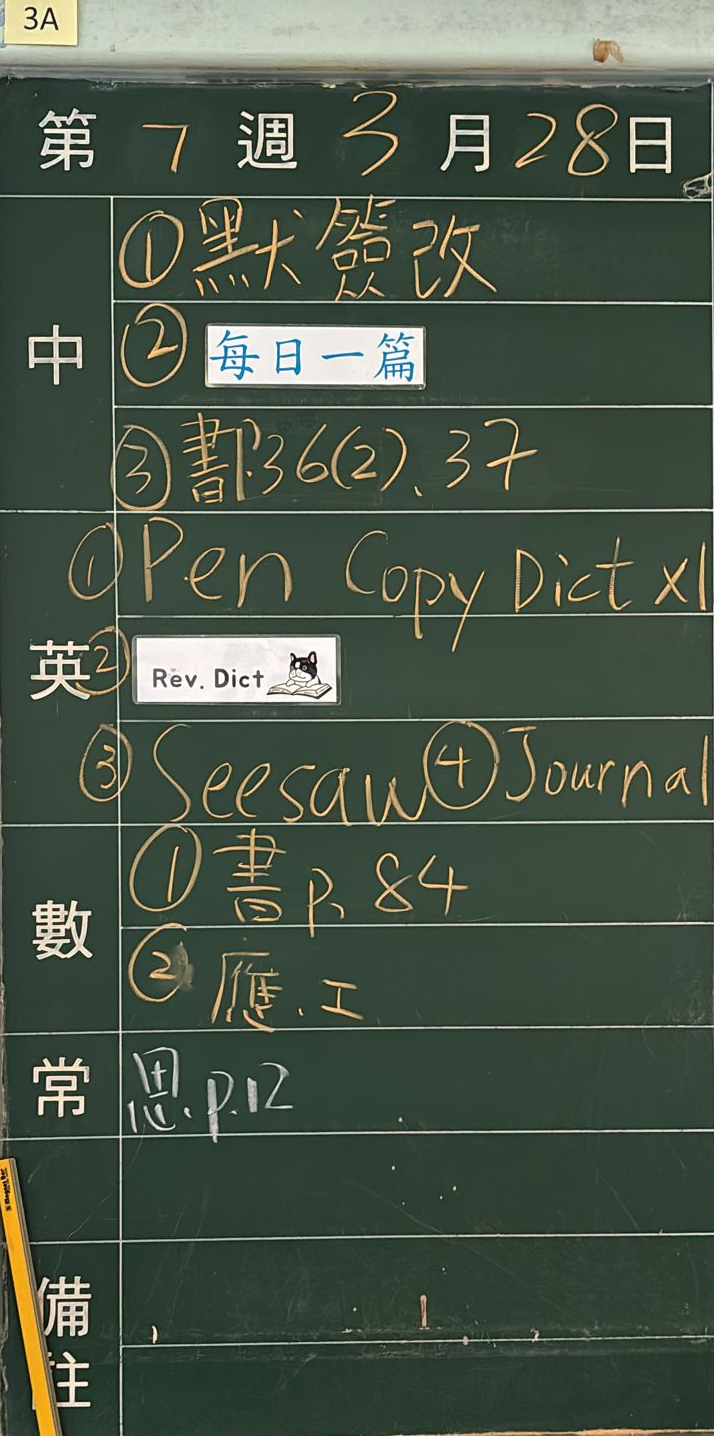 3A
第 7 週 3 月 28 日
中
①默簽改
②每日一篇
③書P.36(2)、37
英
①Pen Copy Dict x1
②Rev. Dict
③Seesaw ④Journal
數
①書P.84
②應.工
常
思.p.12
備註